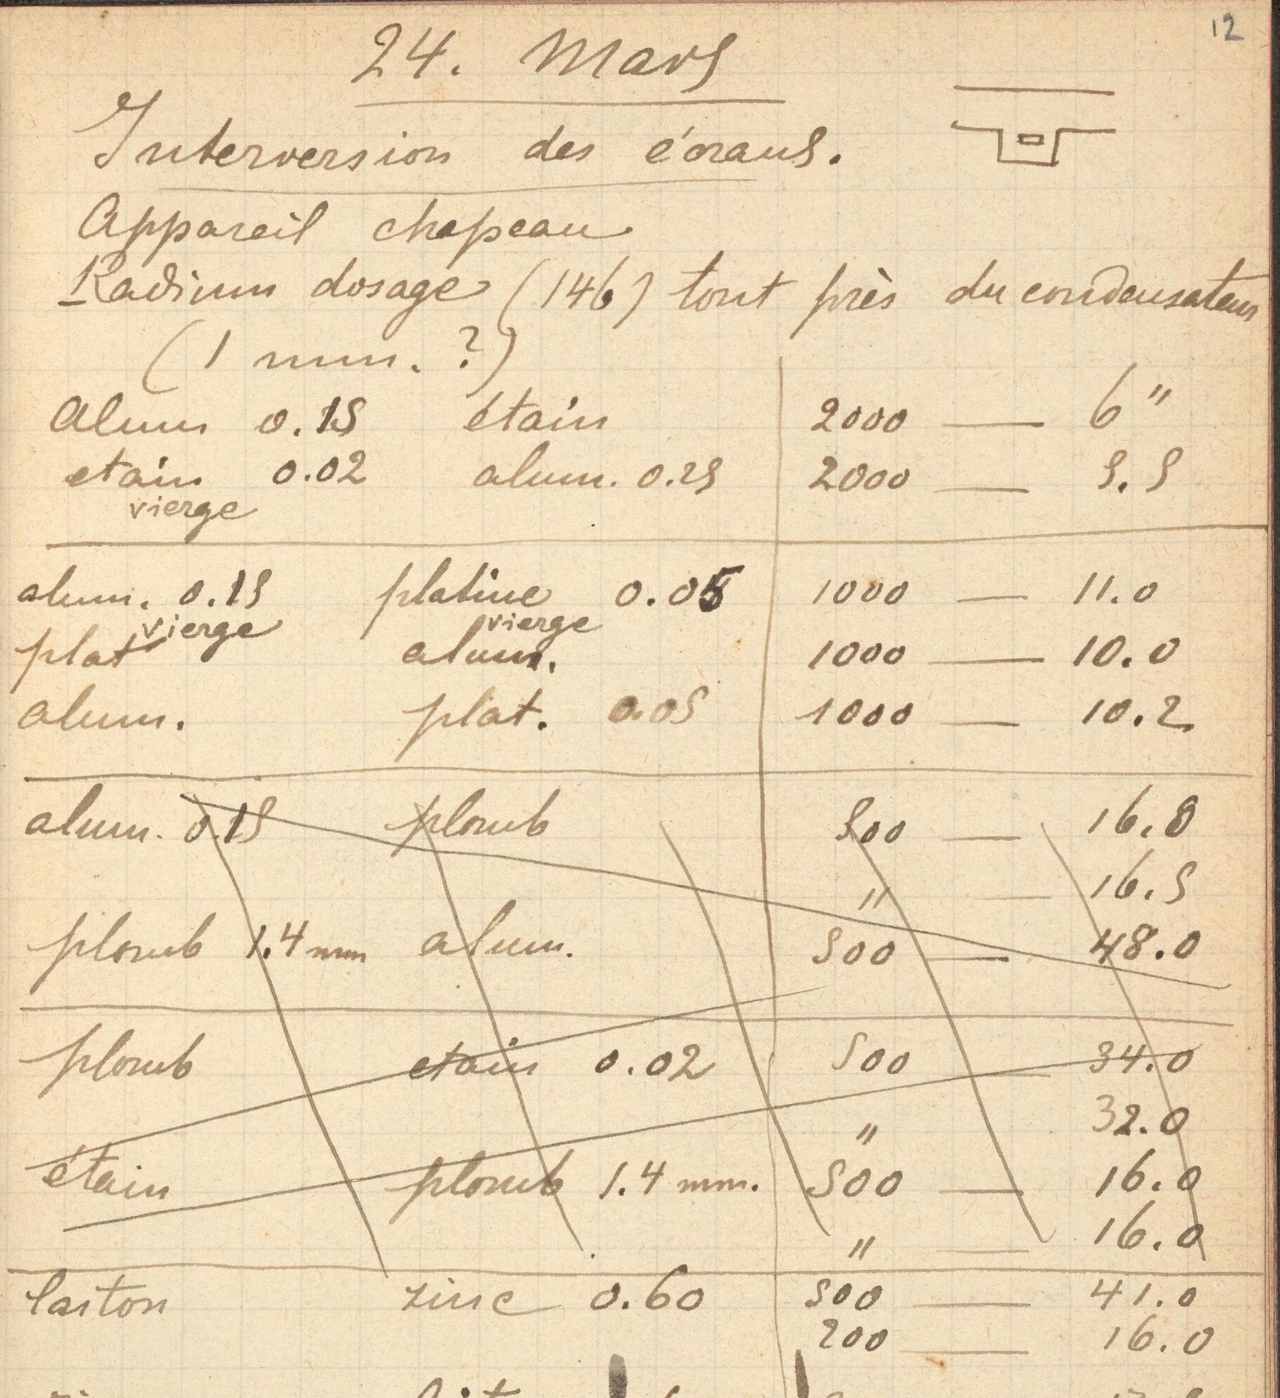 12
24. Mars
Interversion des écrans.
Appareil chapeau
Radium dosage (146) tout près du condensateur
(1 mm. ?)
Alum 0.15 étain 2000 — 6"
etain 0.02 alum. 0.15 2000 — 5.5
vierge
alum. 0.15 platine 0.05 1000 — 11.0
vierge vierge
plat alum. 1000 — 10.0
alum. plat. 0.05 1000 — 10.2
alum. 0.15 plomb 500 — 16.8
" — 16.5
plomb 1.4 mm alum. 500 — 48.0
plomb etain 0.02 500 — 34.0
" 32.0
étain plomb 1.4 mm. 500 — 16.0
" — 16.0
laiton zinc 0.60 500 — 41.0
200 — 16.0